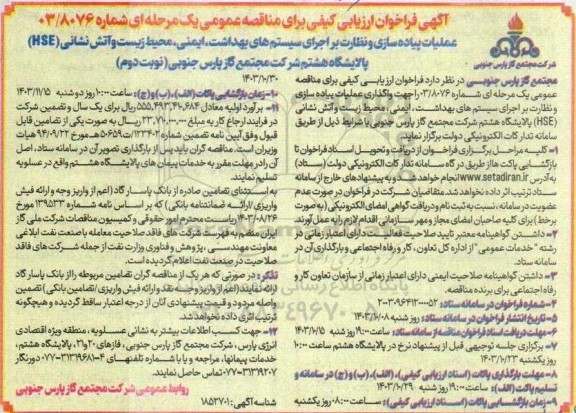 آگهی فراخوان ارزیابی کیفی برای مناقصه عمومی یک مرحله ای شماره ۰۳/۸۰۷۶
عملیات پیاده سازی و نظارت بر اجرای سیستم های بهداشت، ایمنی، محیط زیست و آتش نشانی (HSE)
پالایشگاه هشتم شرکت مجتمع گاز پارس جنوبی (نوبت دوم)
شرکت مجتمع گاز پارس جنوبی
مجتمع گاز پارس جنوبی در نظر دارد فراخوان ارزیابی کیفی برای مناقصه
عمومی یک مرحله ای شماره ۰۳/۸۰۷۶ را جهت واگذاری عملیات پیاده سازی
و نظارت بر اجرای سیستم های بهداشت، ایمنی، محیط زیست و آتش نشانی
(HSE) پالایشگاه هشتم شرکت مجتمع گاز پارس جنوبی با شرایط ذیل از طریق
سامانه تدارکات الکترونیکی دولت برگزار نماید.
۱- کلیه مراحل برگزاری فراخوان از دریافت و تحویل اسناد فراخوان تا
بازگشایی پاکت ها از طریق درگاه سامانه تدارکات الکترونیکی دولت (ستاد)
به آدرس www.setadiran.ir انجام خواهد شد و به پیشنهادهای خارج از سامانه
ستاد ترتیب اثر داده نخواهد شد. متقاضیان شرکت در فراخوان در صورت عدم
عضویت در سامانه، نسبت به ثبت نام و دریافت گواهی امضای الکترونیکی (به صورت
برخط) برای کلیه صاحبان امضای مجاز و مهر سازمانی اقدام لازم را به عمل آورند.
۲- داشتن گواهینامه معتبر تایید صلاحیت فعالیت دارای اعتبار زمانی در
رشته "خدمات عمومی" از اداره کل تعاون، کار و رفاه اجتماعی و بارگذاری آن در
سامانه ستاد.
۳- داشتن گواهینامه صلاحیت ایمنی دارای اعتبار زمانی از سازمان تعاون کار و
رفاه اجتماعی برای برنده مناقصه.
۴- شماره فراخوان در سامانه ستاد:
۵- تاریخ انتشار فراخوان در سامانه ستاد: روز شنبه ۱۴۰۳/۶/۰۸
۶- مهلت دریافت اسناد فراخوان مناقصه از سامانه ستاد: ساعت ۱۹:۰۰ روز شنبه ۱۴۰۳/۶/۱۵
۷- برگزاری جلسه توجیهی قبل از پیشنهاد نرخ در پالایشگاه هشتم ساعت ۱۰:۰۰
روز یکشنبه
۸- مهلت بارگذاری پاکات (اسناد ارزیابی کیفی)، (الف)، (ب) و (ج) در سامانه و
تسلیم پاکات (الف): ساعت ۱۹:۰۰ روز شنبه
۹- زمان بازگشایی پاکات (اسناد ارزیابی کیفی): ساعت ۰۸:۰۰ روز یکشنبه
۱۴۰۳/۶/۳۰
۱۰- زمان بازگشایی پاکات (الف)، (ب) و (ج): ساعت ۱۰:۰۰ روز دوشنبه ۱۴۰۳/۱۱/۱۵
۱۱- برآورد اولیه معادل ریال برای یک سال و تضمین شرکت
در فرایند ارجاع کار به مبلغ ریال به صورت یکی از تضامین قابل
قبول وفق آیین نامه تضمین شماره مورخ ۹۴/۰۹/۲۲ هیات
وزیران است. مناقصه گران باید پس از بارگذاری تصویر آن در سامانه ستاد، اصل
آن را در مهلت مقرر به خدمات پیمان های پالایشگاه هشتم واقع در عسلویه
تسلیم نمایند.
به استثنای تضامین صادره از بانک پاسارگاد (اعم از واریز وجه و ارائه فیش
واریزی/ارائه ضمانتنامه بانکی) که بر اساس نامه شماره مورخ
ریاست محترم امور حقوقی و کمیسیون مناقصات شرکت ملی گاز
معاونت مهندسی، پژوهش و فناوری وزارت نفت از جمله شرکت های فاقد
صلاحیت در صنعت نفت اعلام گردیده است.
تذکر: در صورتی که هر یک از مناقصه گران تضامین مربوطه را از بانک پاسارگاد
ارائه نمایند (اعم از واریز وجه نقد و ارائه فیش واریزی/تضامین بانکی) تضمین
واصله مردود و قیمت پیشنهادی آنان از درجه اعتبار ساقط گردیده و هیچگونه
ترتیب اثری داده نخواهد شد.
۱۲- جهت کسب اطلاعات بیشتر به نشانی عسلویه، منطقه ویژه اقتصادی
انرژی پارس، شرکت مجتمع گاز پارس جنوبی، فازهای ۲۰ و ۲۱، پالایشگاه هشتم،
خدمات پیمانها، مراجعه و یا با شماره تلفنهای ۴-۰۷۷۳۱۳۱۹۶۸۱ دورنگار
۰۷۷-۳۱۳۱۹۲۰۷ تماس حاصل نمایند.
روابط عمومی شرکت مجتمع گاز پارس جنوبی
شناسه آگهی: ۱۸۵۲۷۰۱